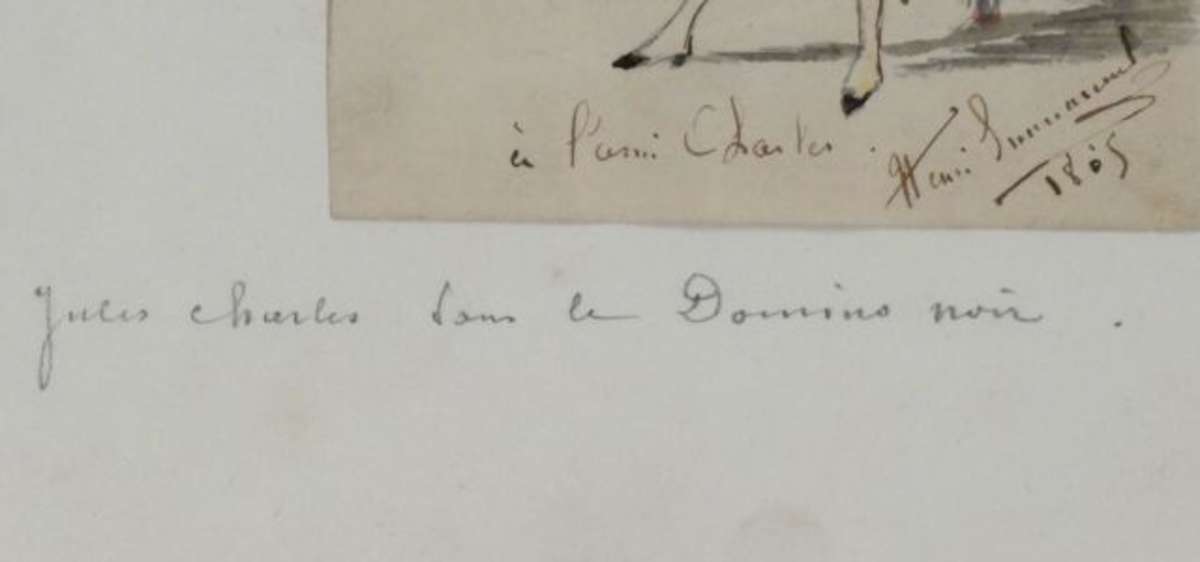 à l'ami Charles.
Henri
1865
Jules Charles dans le Domino noir.